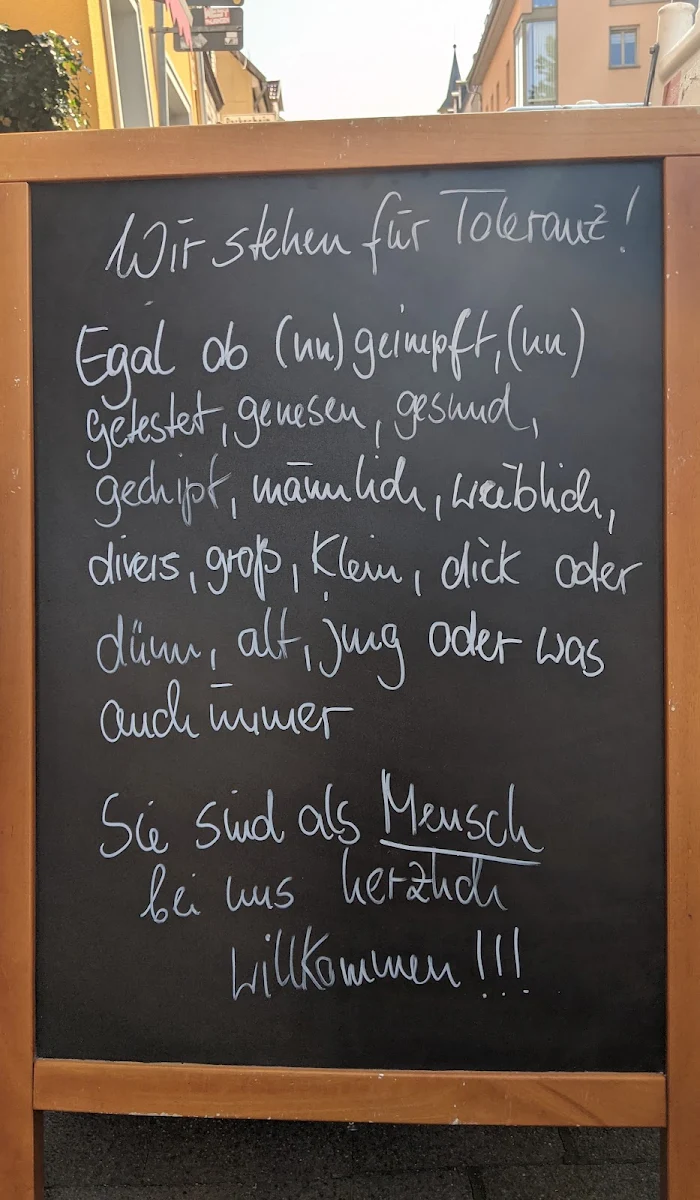 Wir stehen für Toleranz!
Egal ob (un)geimpft, (un)
getestet, genesen, gesund,
gechipt, männlich, weiblich,
divers, groß, klein, dick oder
dünn, alt, jung oder was
auch immer
Sie sind als Mensch
bei uns herzlich
willkommen!!!